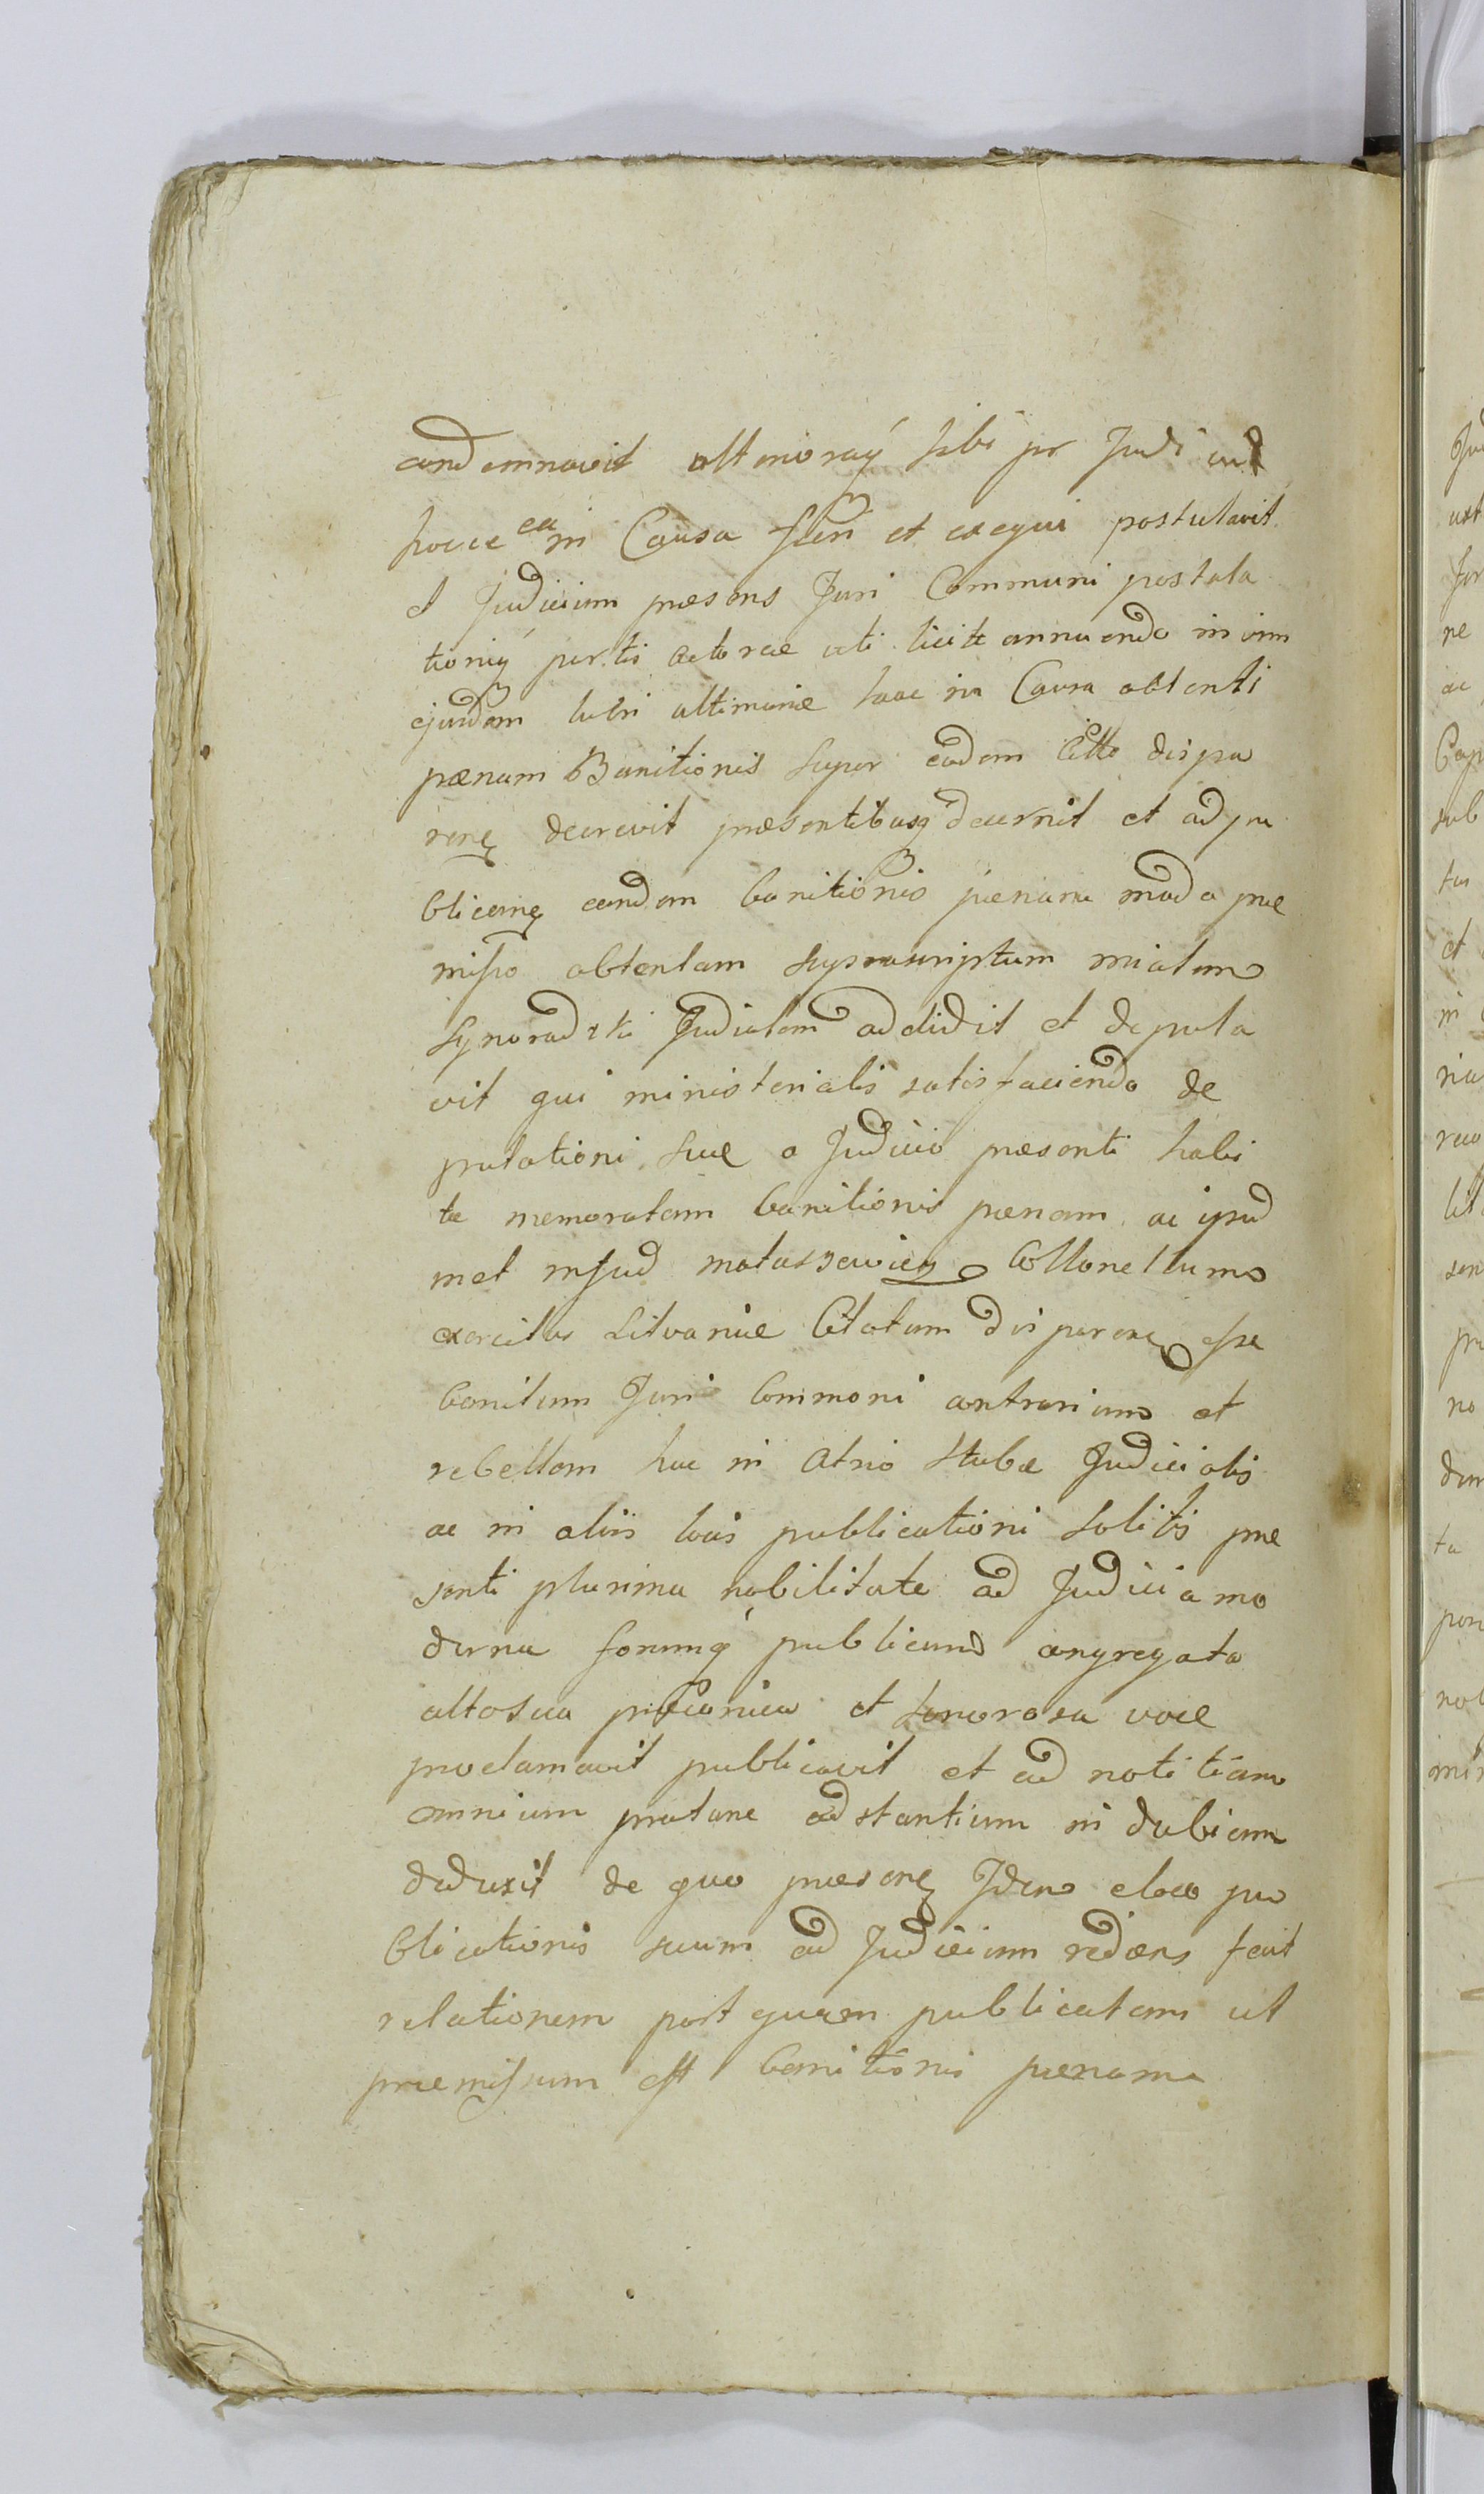 condemnavit ulterioraq́ sibi pr Judi iud
hocce ea in Causa fieri et exequi postulavit
et Judicium præsens Juri Communi postula
tioniq́ partis actoreæ uti licite annuendo in vim
ejusdem lucri ultimarie hac in Causa obtenti
pænam Banitionis super eodem Citto dispa
renę decrevit præsentibusq́ decernit et ad pu
blicanę eandem banitionis pænam modo præ
misso obtentam suprascriptum
Synoradzki Judicialem addidit et deputa
vit qui ministerialis satisfaciendo de
putationi suæ a Judicio præsenti habi
tæ memoratam banitionis pænam ac ipsud
met msud matuszewicz Collonellum
exercitus Litvaniæ Citatum disparenę esse
banitum Juri Commoni contrarium et
rebellem hac in atrio stubæ Judicialis
ac in aliis locis publicationi solitis præ
senti plurima nobilitate ad Judicia mo
derna forumq́ publicum congregata
altosua præconica et sonorosa voce
proclamavit publicavit et ad notitiam
omnium protunc adstantium indubiam
deduxit de quo præsenę Idem eloco pu
blicationis suum ad Judicium rediens fecit
relationem post quam publicatam ut
præmissum est banitionis pænam